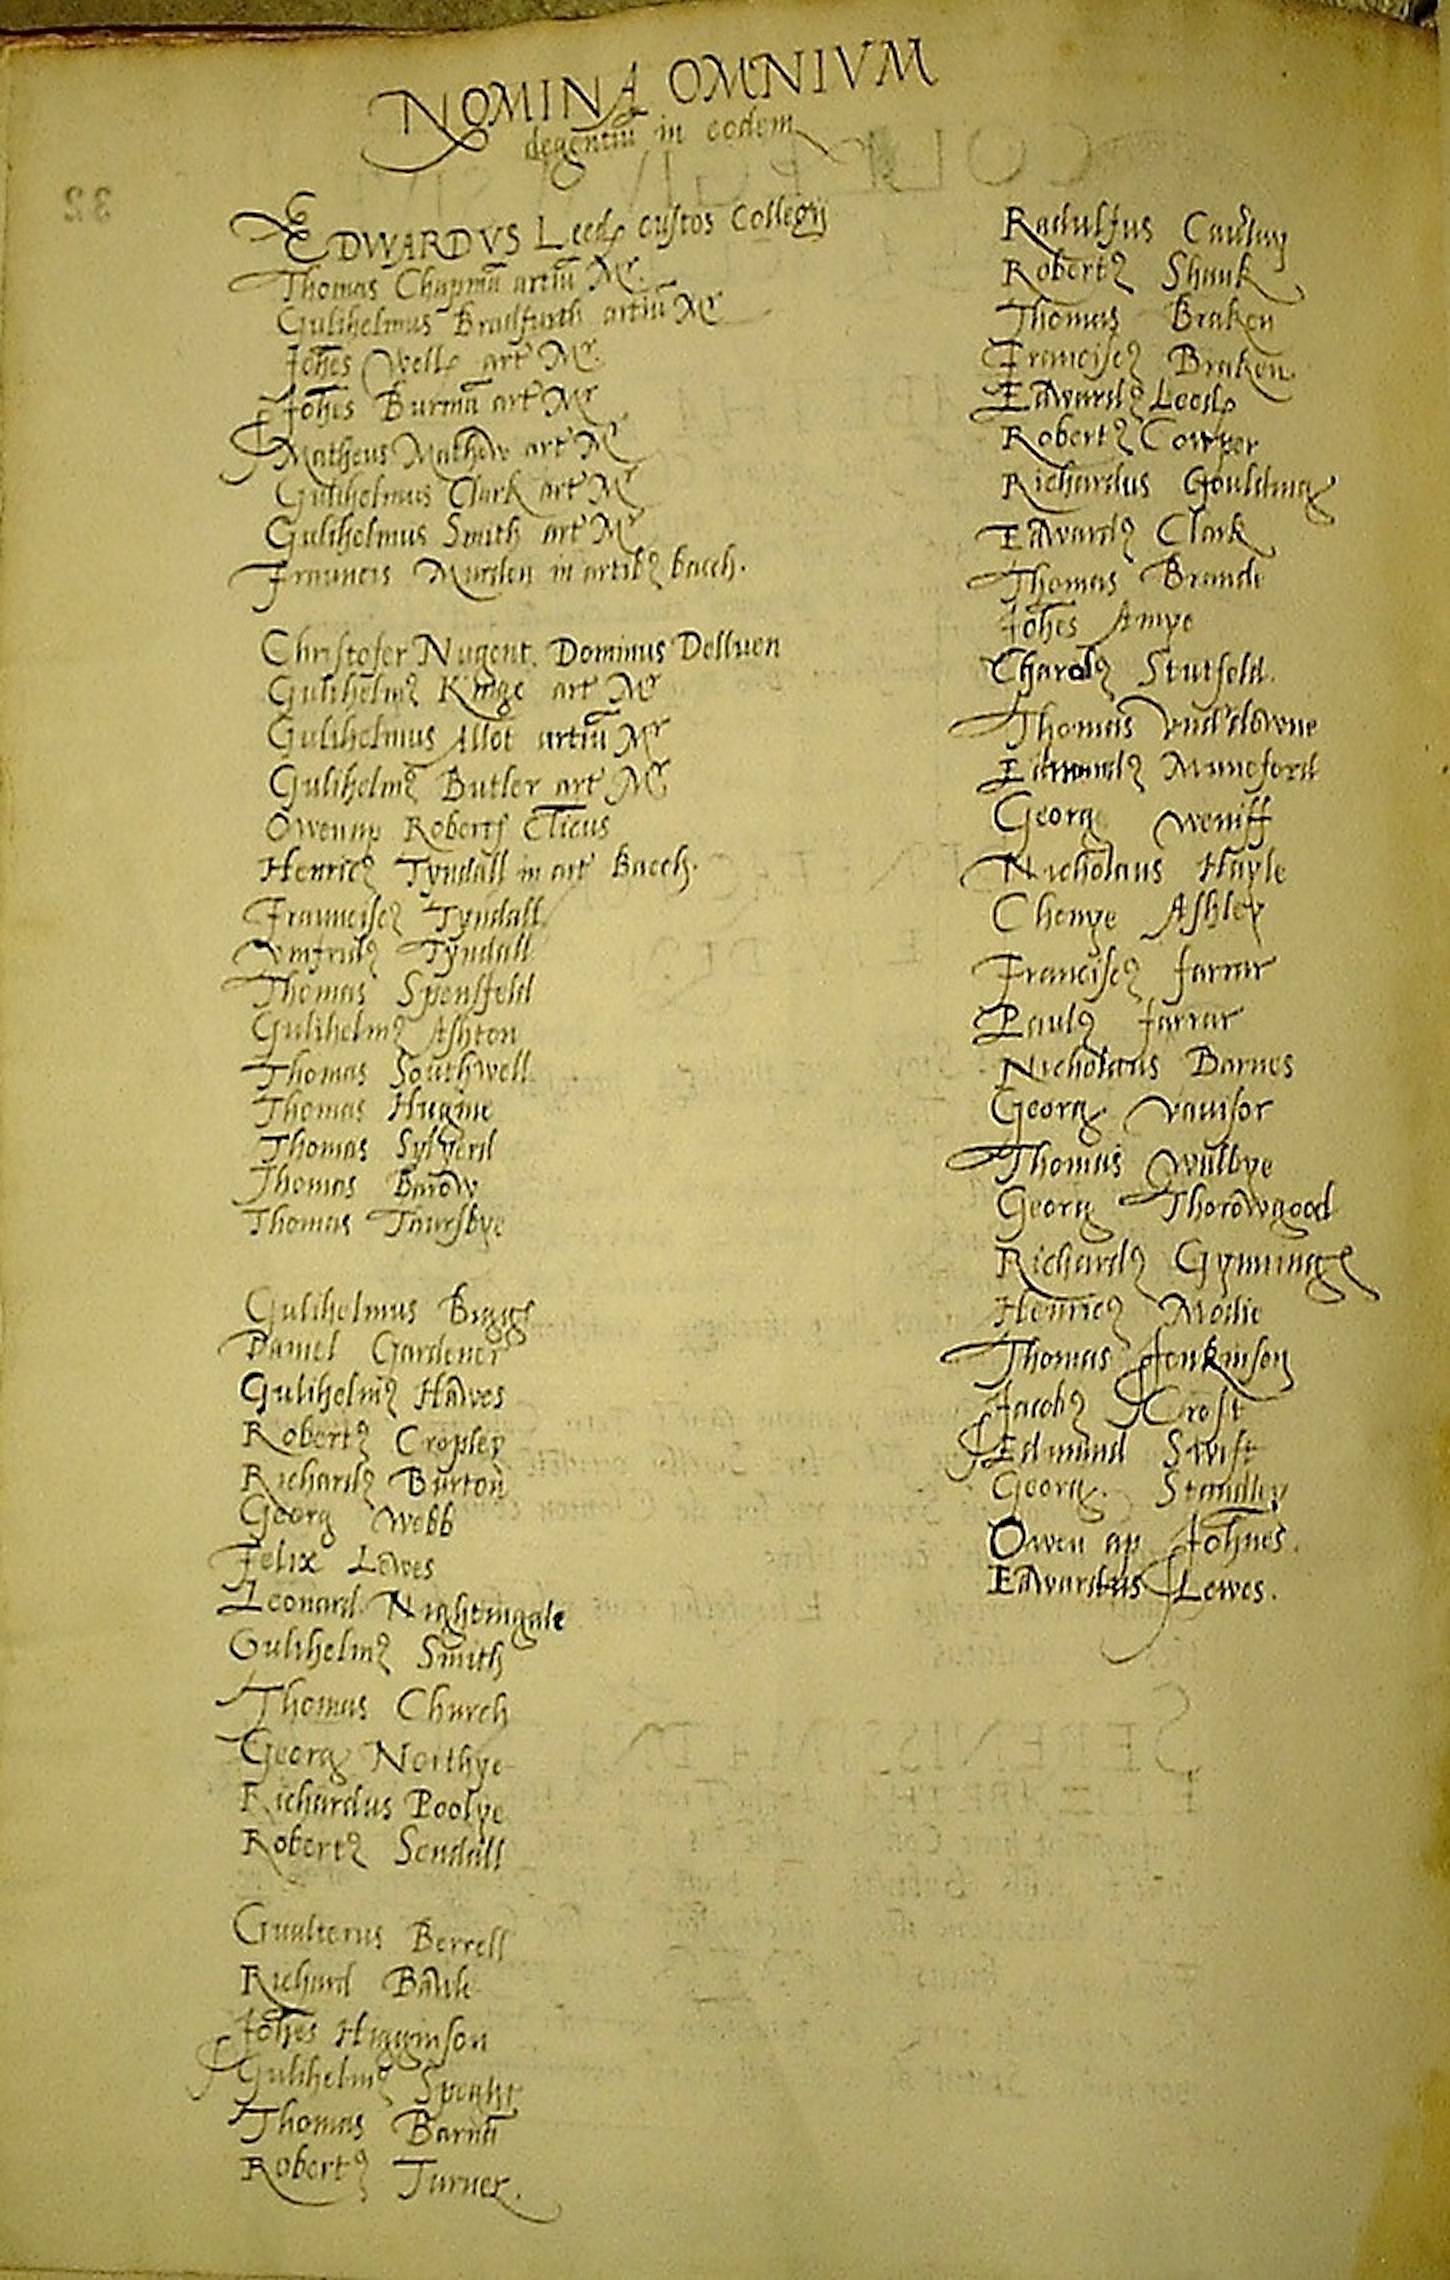 NOMINA OMNIVM
degentiū in eodem
EDWARDVS Leeds custos Collegij
Thomas Chapmā artiū Mr.
Gulihelmus Bradfurth artiū Mr
Johēs Wells art Mr.
Johēs Burmā art Mr
Matheus Mathew art Mr
Gulihelmus Clark art Mr
Gulihelmus Smith art Mr
Frauncis Mursden in artibꝫ bacch.
Christofer Nugent. Dominus Delluen
Gulihelmꝯ Kinge art Mr
Gulihelmus Allot artiū Mr
Gulihelmꝯ Butler art Mr
Owenap Roberts Clīcus
Henricꝯ Tyndall in art Bacch.
Frauncisꝯ Tyndall
Vmfridꝯ Tyndall
Thomas Spensfeld
Gulihelmꝯ Ashton
Thomas Southwell
Thomas Hugine
Thomas Sylyerd
Thomas Barow
Thomas Thursbye
Gulihelmus Biggs
Daniel Gardener
Gulihelmꝯ Hawes
Robertꝯ Cropley
Richardꝯ Burton
Georg Webb
Felix Lewes
Leonard Nightingale
Gulihelmꝯ Smith
Thomas Church
Georg Northye
Richardus Poolye
Robertꝯ Sendall
Gualterus Berrell
Richard Bawle
Johēs Higginson
Gulihelmꝯ Speght
Thomas Barnā
Robertꝯ Turner.
Radulfus
Robertꝯ Shuuk
Thomas Braken
Franciscꝯ Braken.
Edwardꝯ Leeds
Robertꝯ Cowper
Richardus Gouldings
Edwardꝯ Clark
Thomas Brande
Johēs Amye
Charolꝯ Stutfeld.
Thomas Vnd'downe
Edmundꝯ Munçford
Georg Weniff
Nicholaus Hayle
Chenye Ashley
Franciscꝯ farrar
Paulꝯ farrar
Nicholaus Barnes
Georg. Vavisor
Thomas Wilbye
Georg Thorowgood
Richardꝯ Gymings
Henricꝯ Modie
Thomas Jenkinson
Jacobꝯ Croft
Edmund Swift
Georg. Standley
Owen ap Johnes.
Edwardus Lewes.